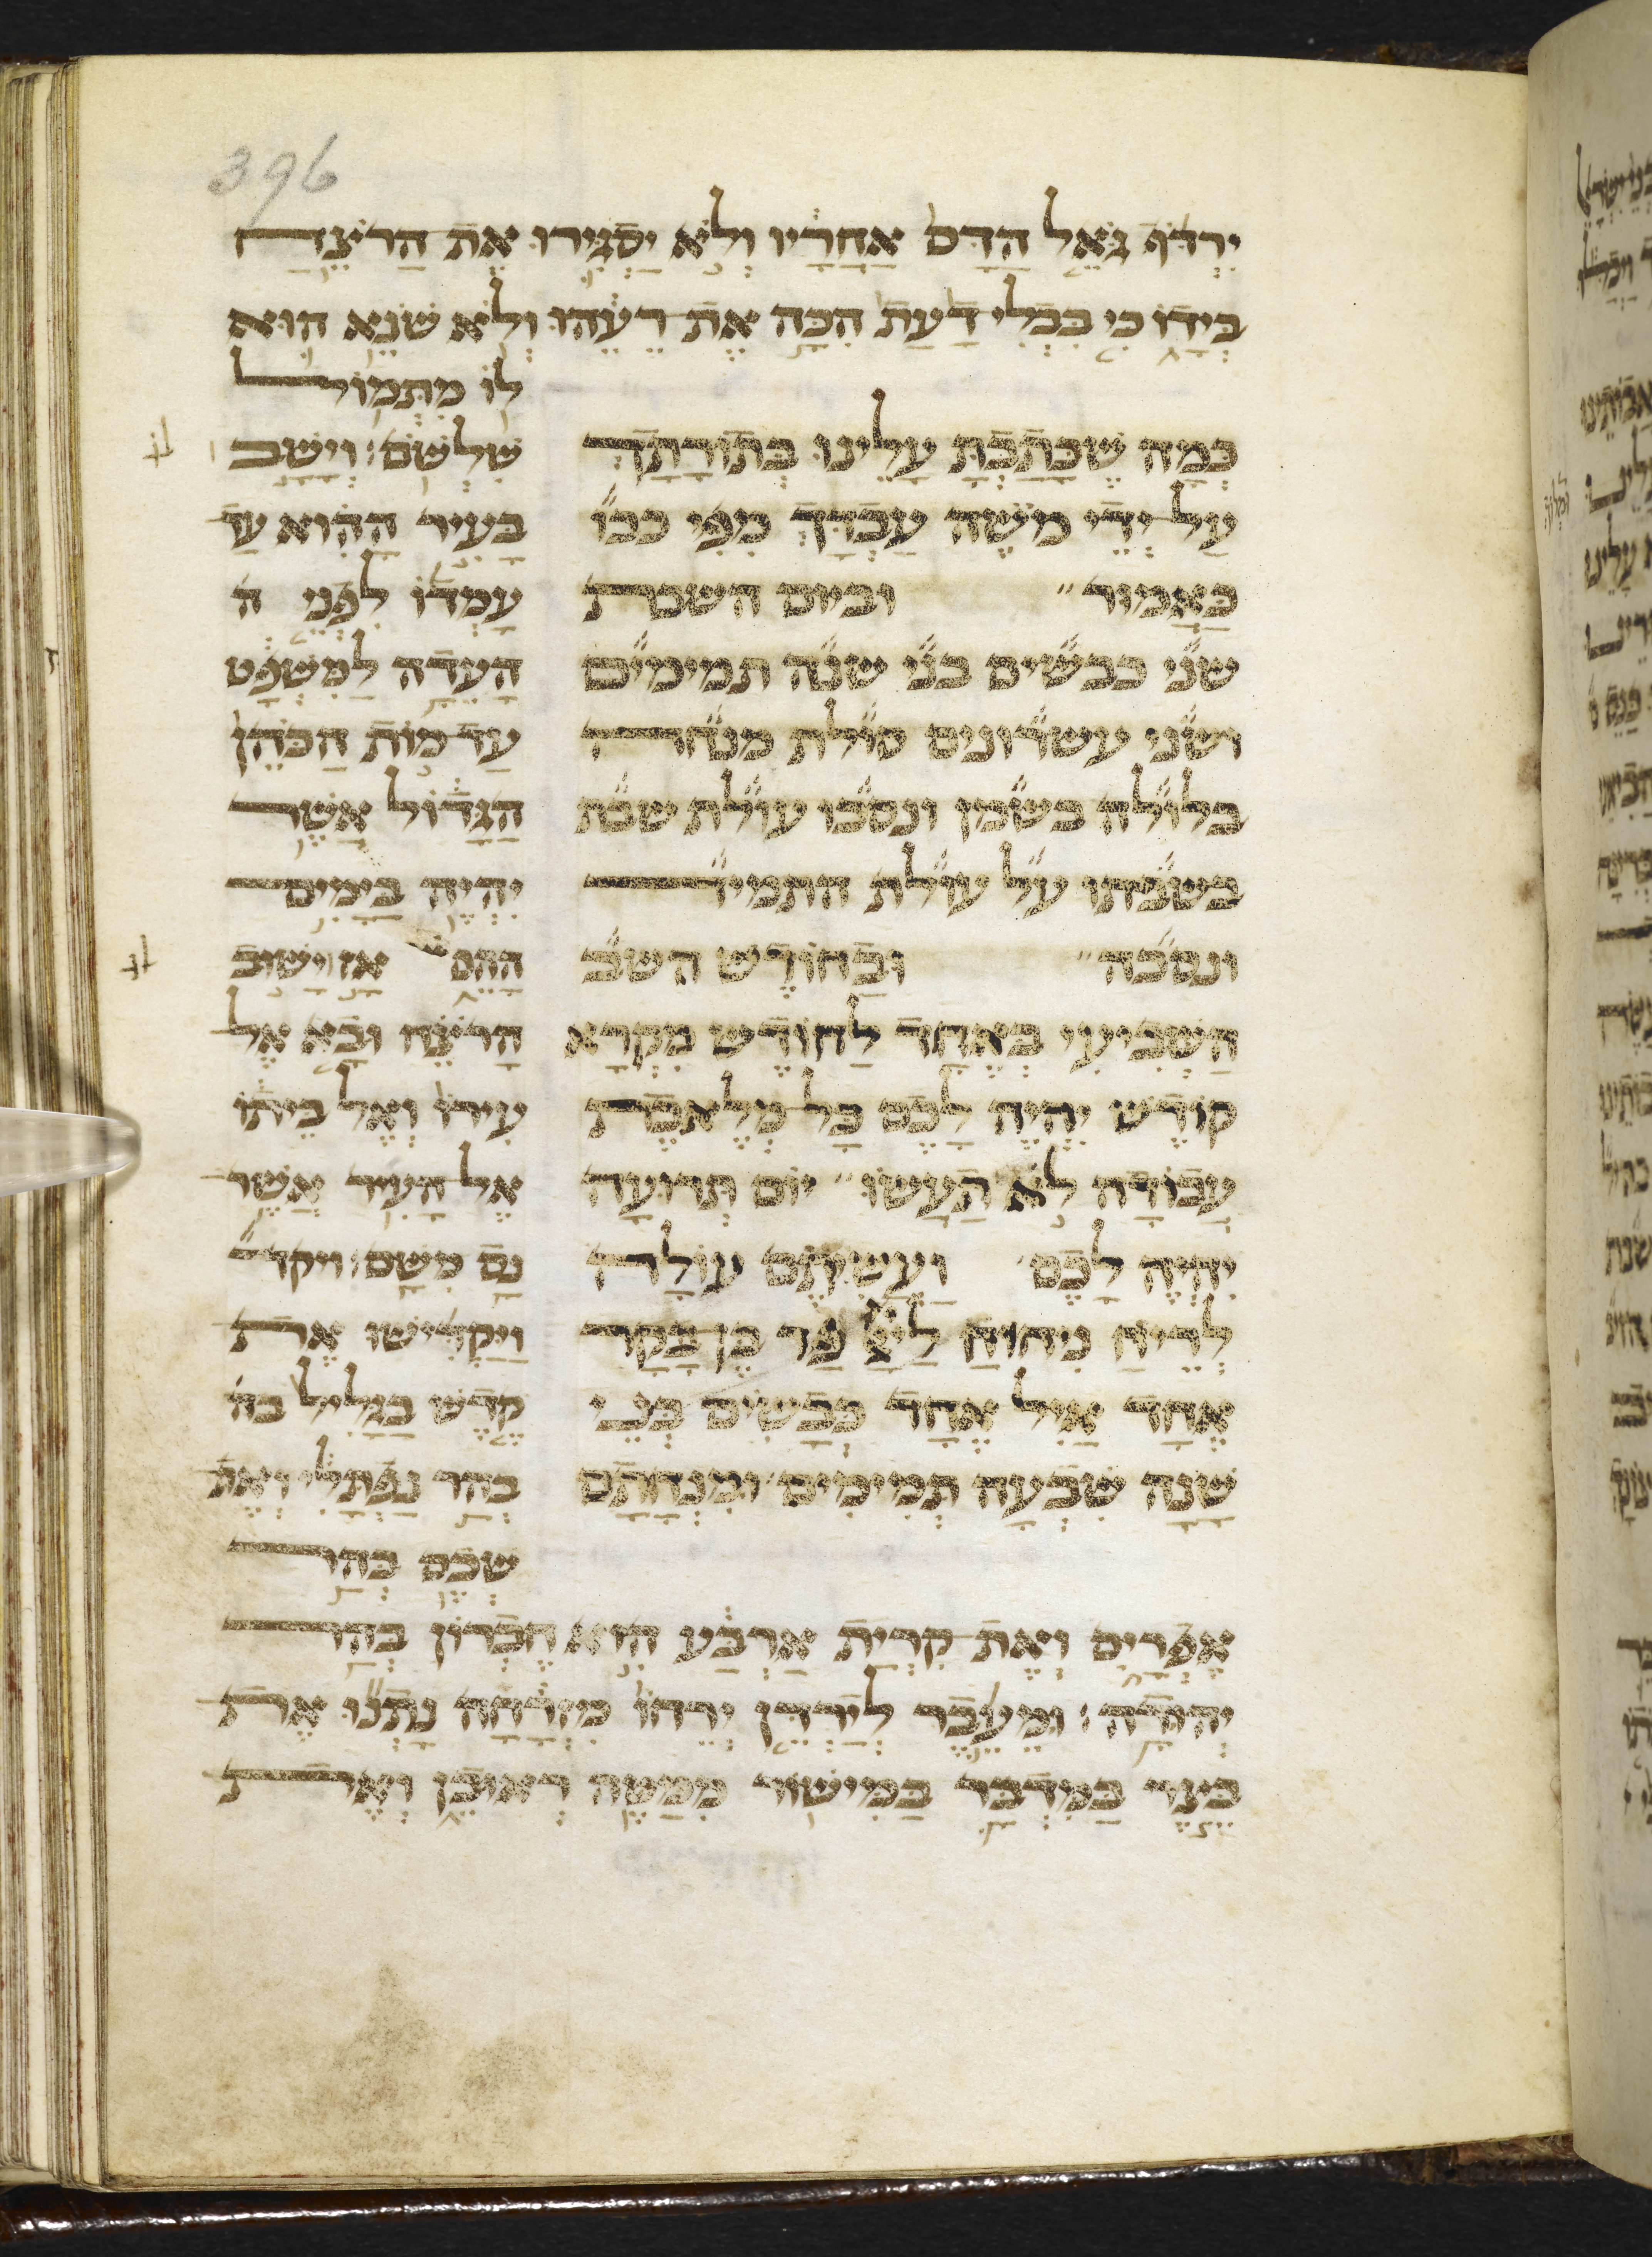 396
ירדף גאל הדם אחריו ולא יסגירו את הרצח
בידו כי בבלי דעת הכה את רעהו ולא שנא הוא
לו מתמול
שלשם: וישב
בעיר ההוא עד
עמדו לפני ה
העדה למשפט
עד מות הכהן
הגדול אשר
יהיה בימים
ההם אז ישוב
הרצח ובא אל
עירו ואל ביתו
אל העיר אשר
נס משם: ויקד
ויקדישו את
קדש בגליל בה
בהר נפתלי ואת
שכם בהר
אפרים ואת קרית ארבע היא חברון בהר
יהודה: ומעבר לירדן יריחו מזרחה נתנו את
בצר במדבר במישור ממטה ראובן ואת
כמה שכתבת עלינו בתורתך
על ידי משה עבדך מפי כבו
כאמור ״ וביום השבת
שני כבשים בני שנה תמימים
ושני עשרונים סולת מנחה
בלולה בשמן ונסכו עולת שבת
בשבתו על עולת התמיד
ונסכה ״ ובחודש השב
השביעי באחד לחודש מקרא
קודש יהיה לכם כל מלאכת
עבודה לא תעשו ״ יום תרועה
יהיה לכם ועשיתם עולה
לריח ניחוח ליי פר בן בקר
אחד איל אחד כבשים בני
שנה שבעה תמימים ומנחתם